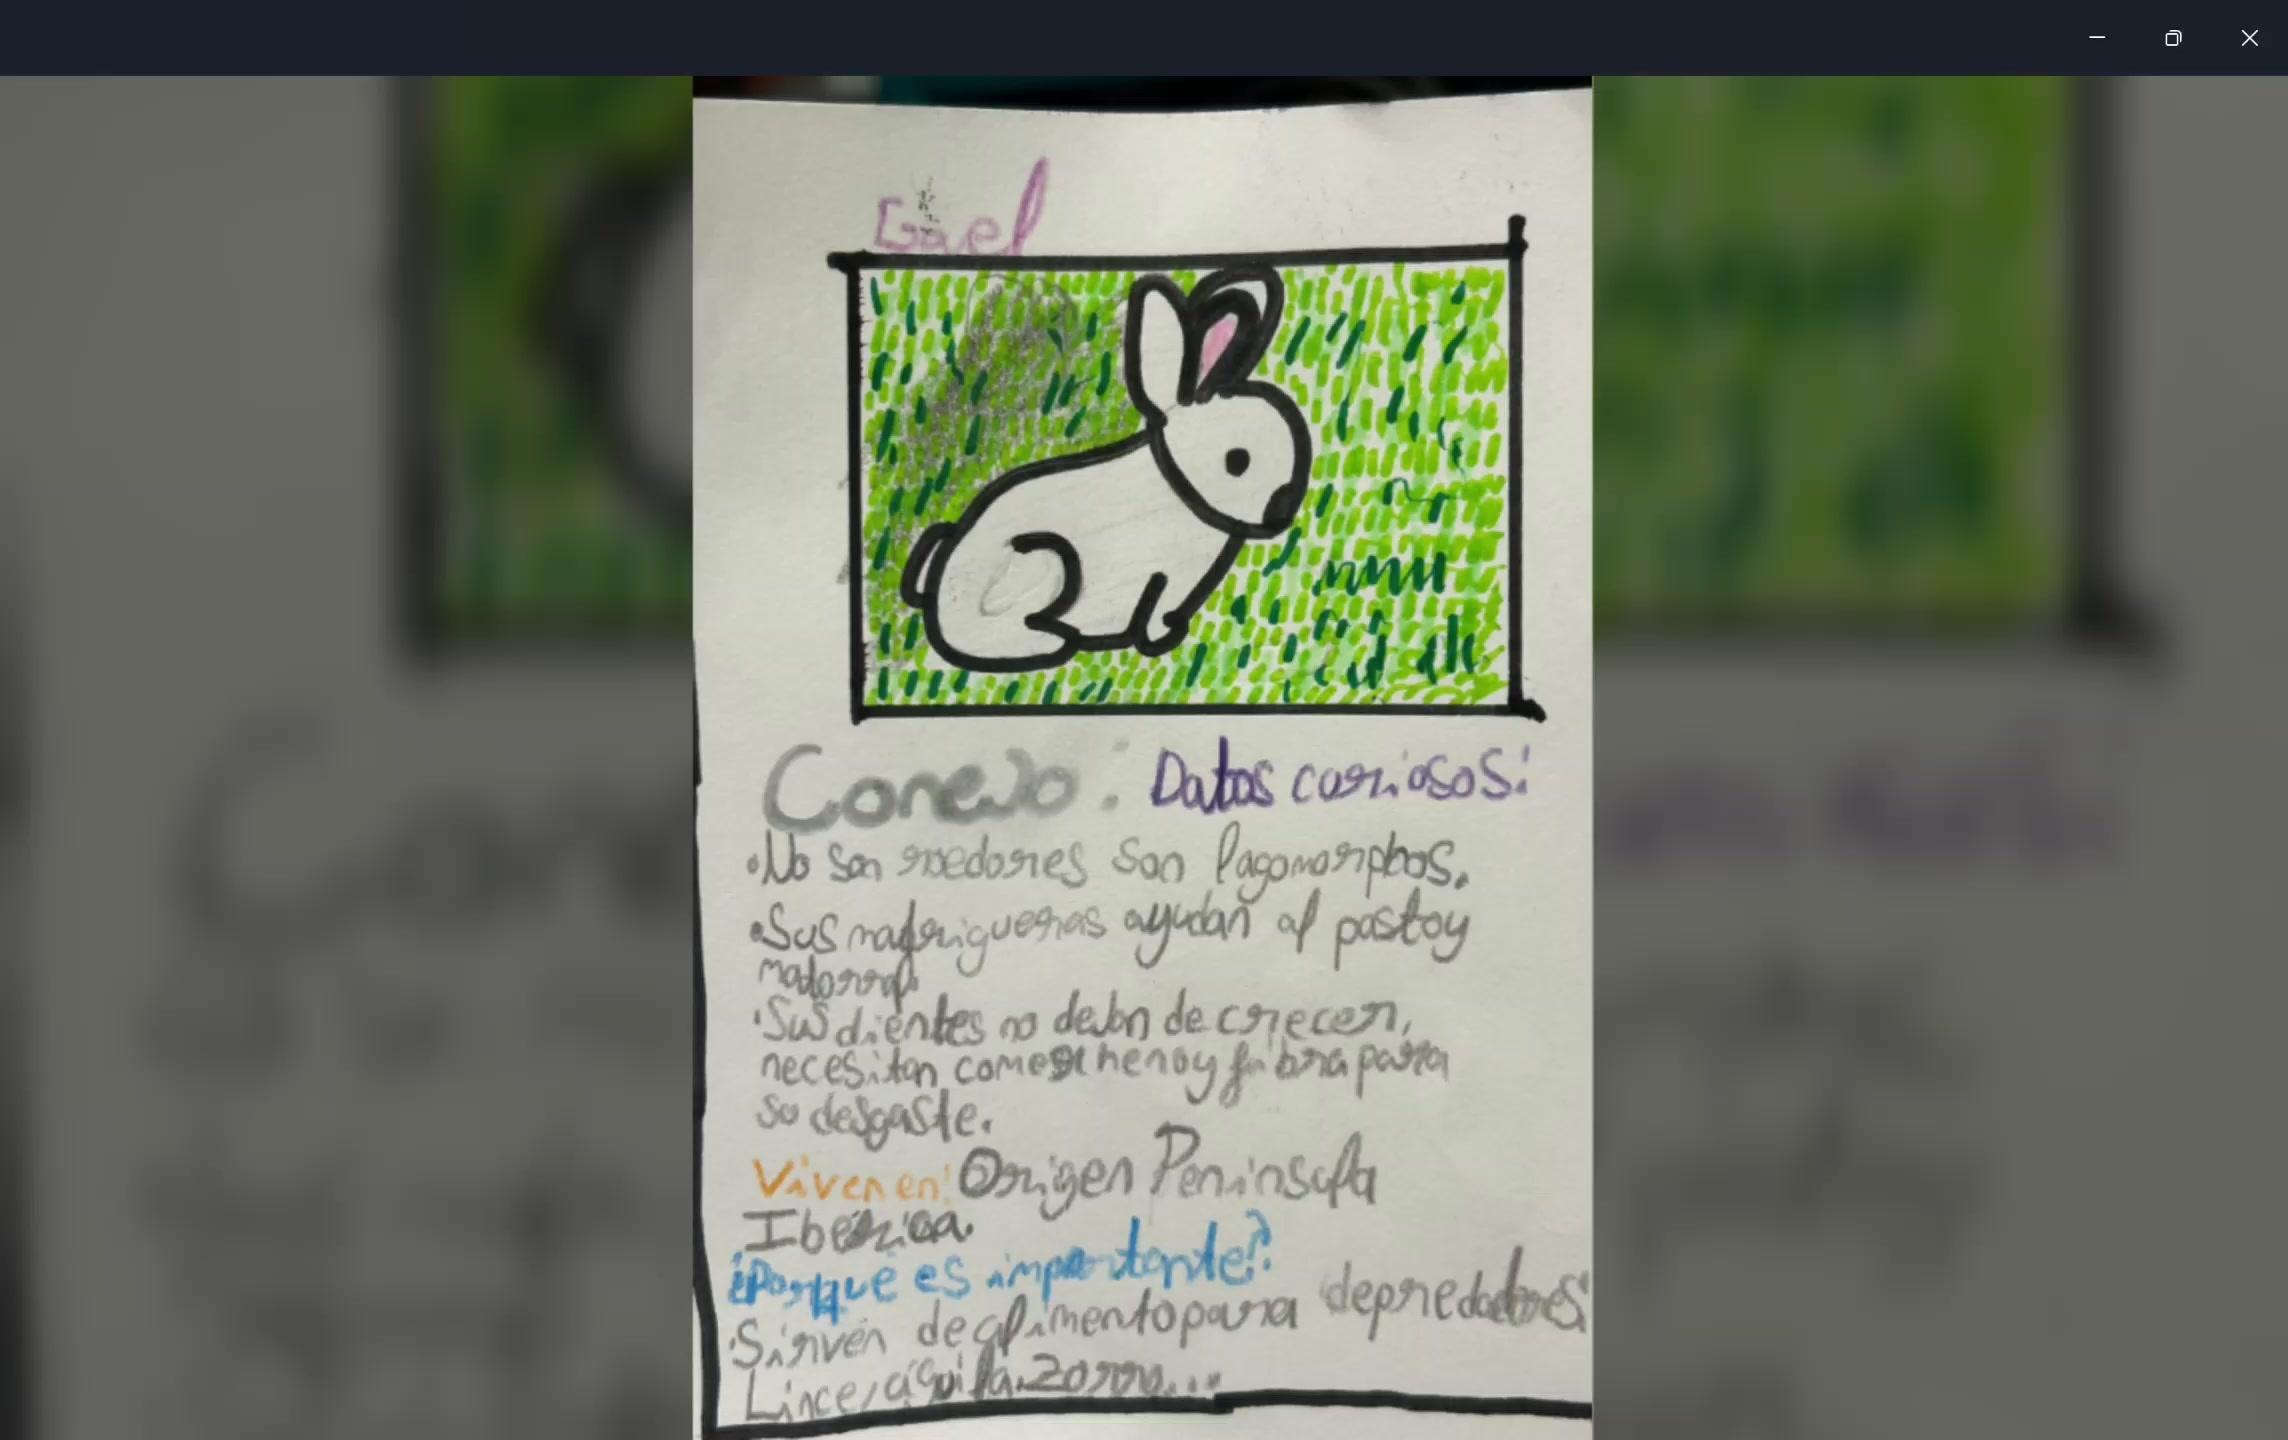 Gael
Conejo: Datos curiosos:
•No son roedores son lagomorphos.
•Sus madrigueras ayudan al pasto y
matorral.
•Sus dientes no dejan de crecer,
necesitan comer heno y fibra para
su desgaste.
Viven en: Origen Peninsula
Iberica.
¿Porque es importante?
•Sirven de alimento para depredadores:
Lince, águila, zorro...